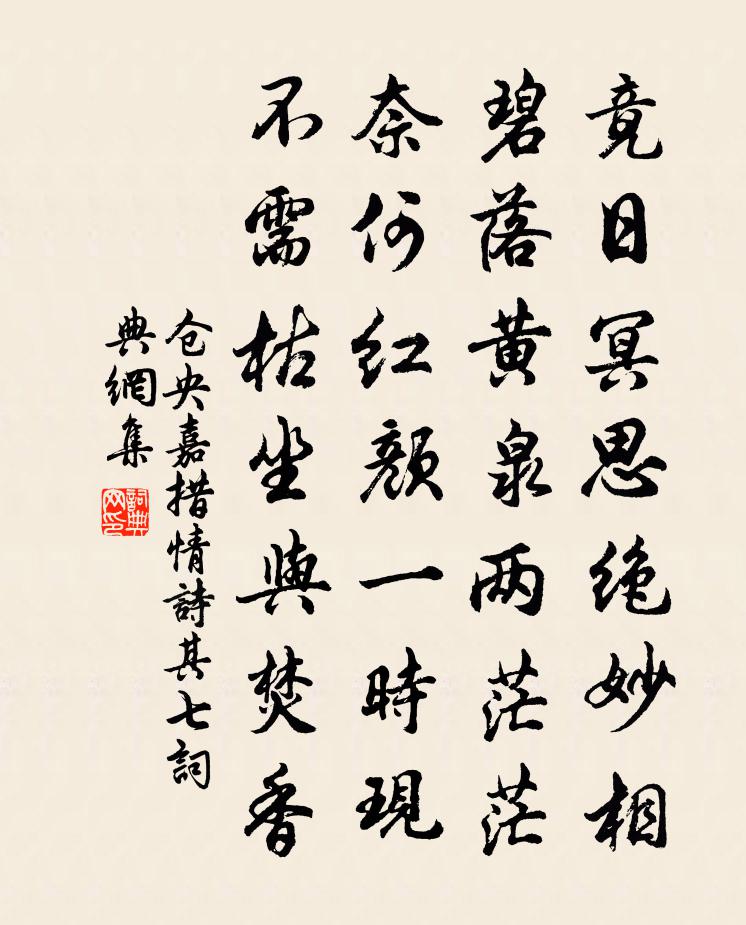 竟日冥思絶妙相
碧落黄泉两茫茫
奈何红颜一時現
不需枯坐與焚香
仓央嘉措情詩其七詞
典網集
詞典
网印